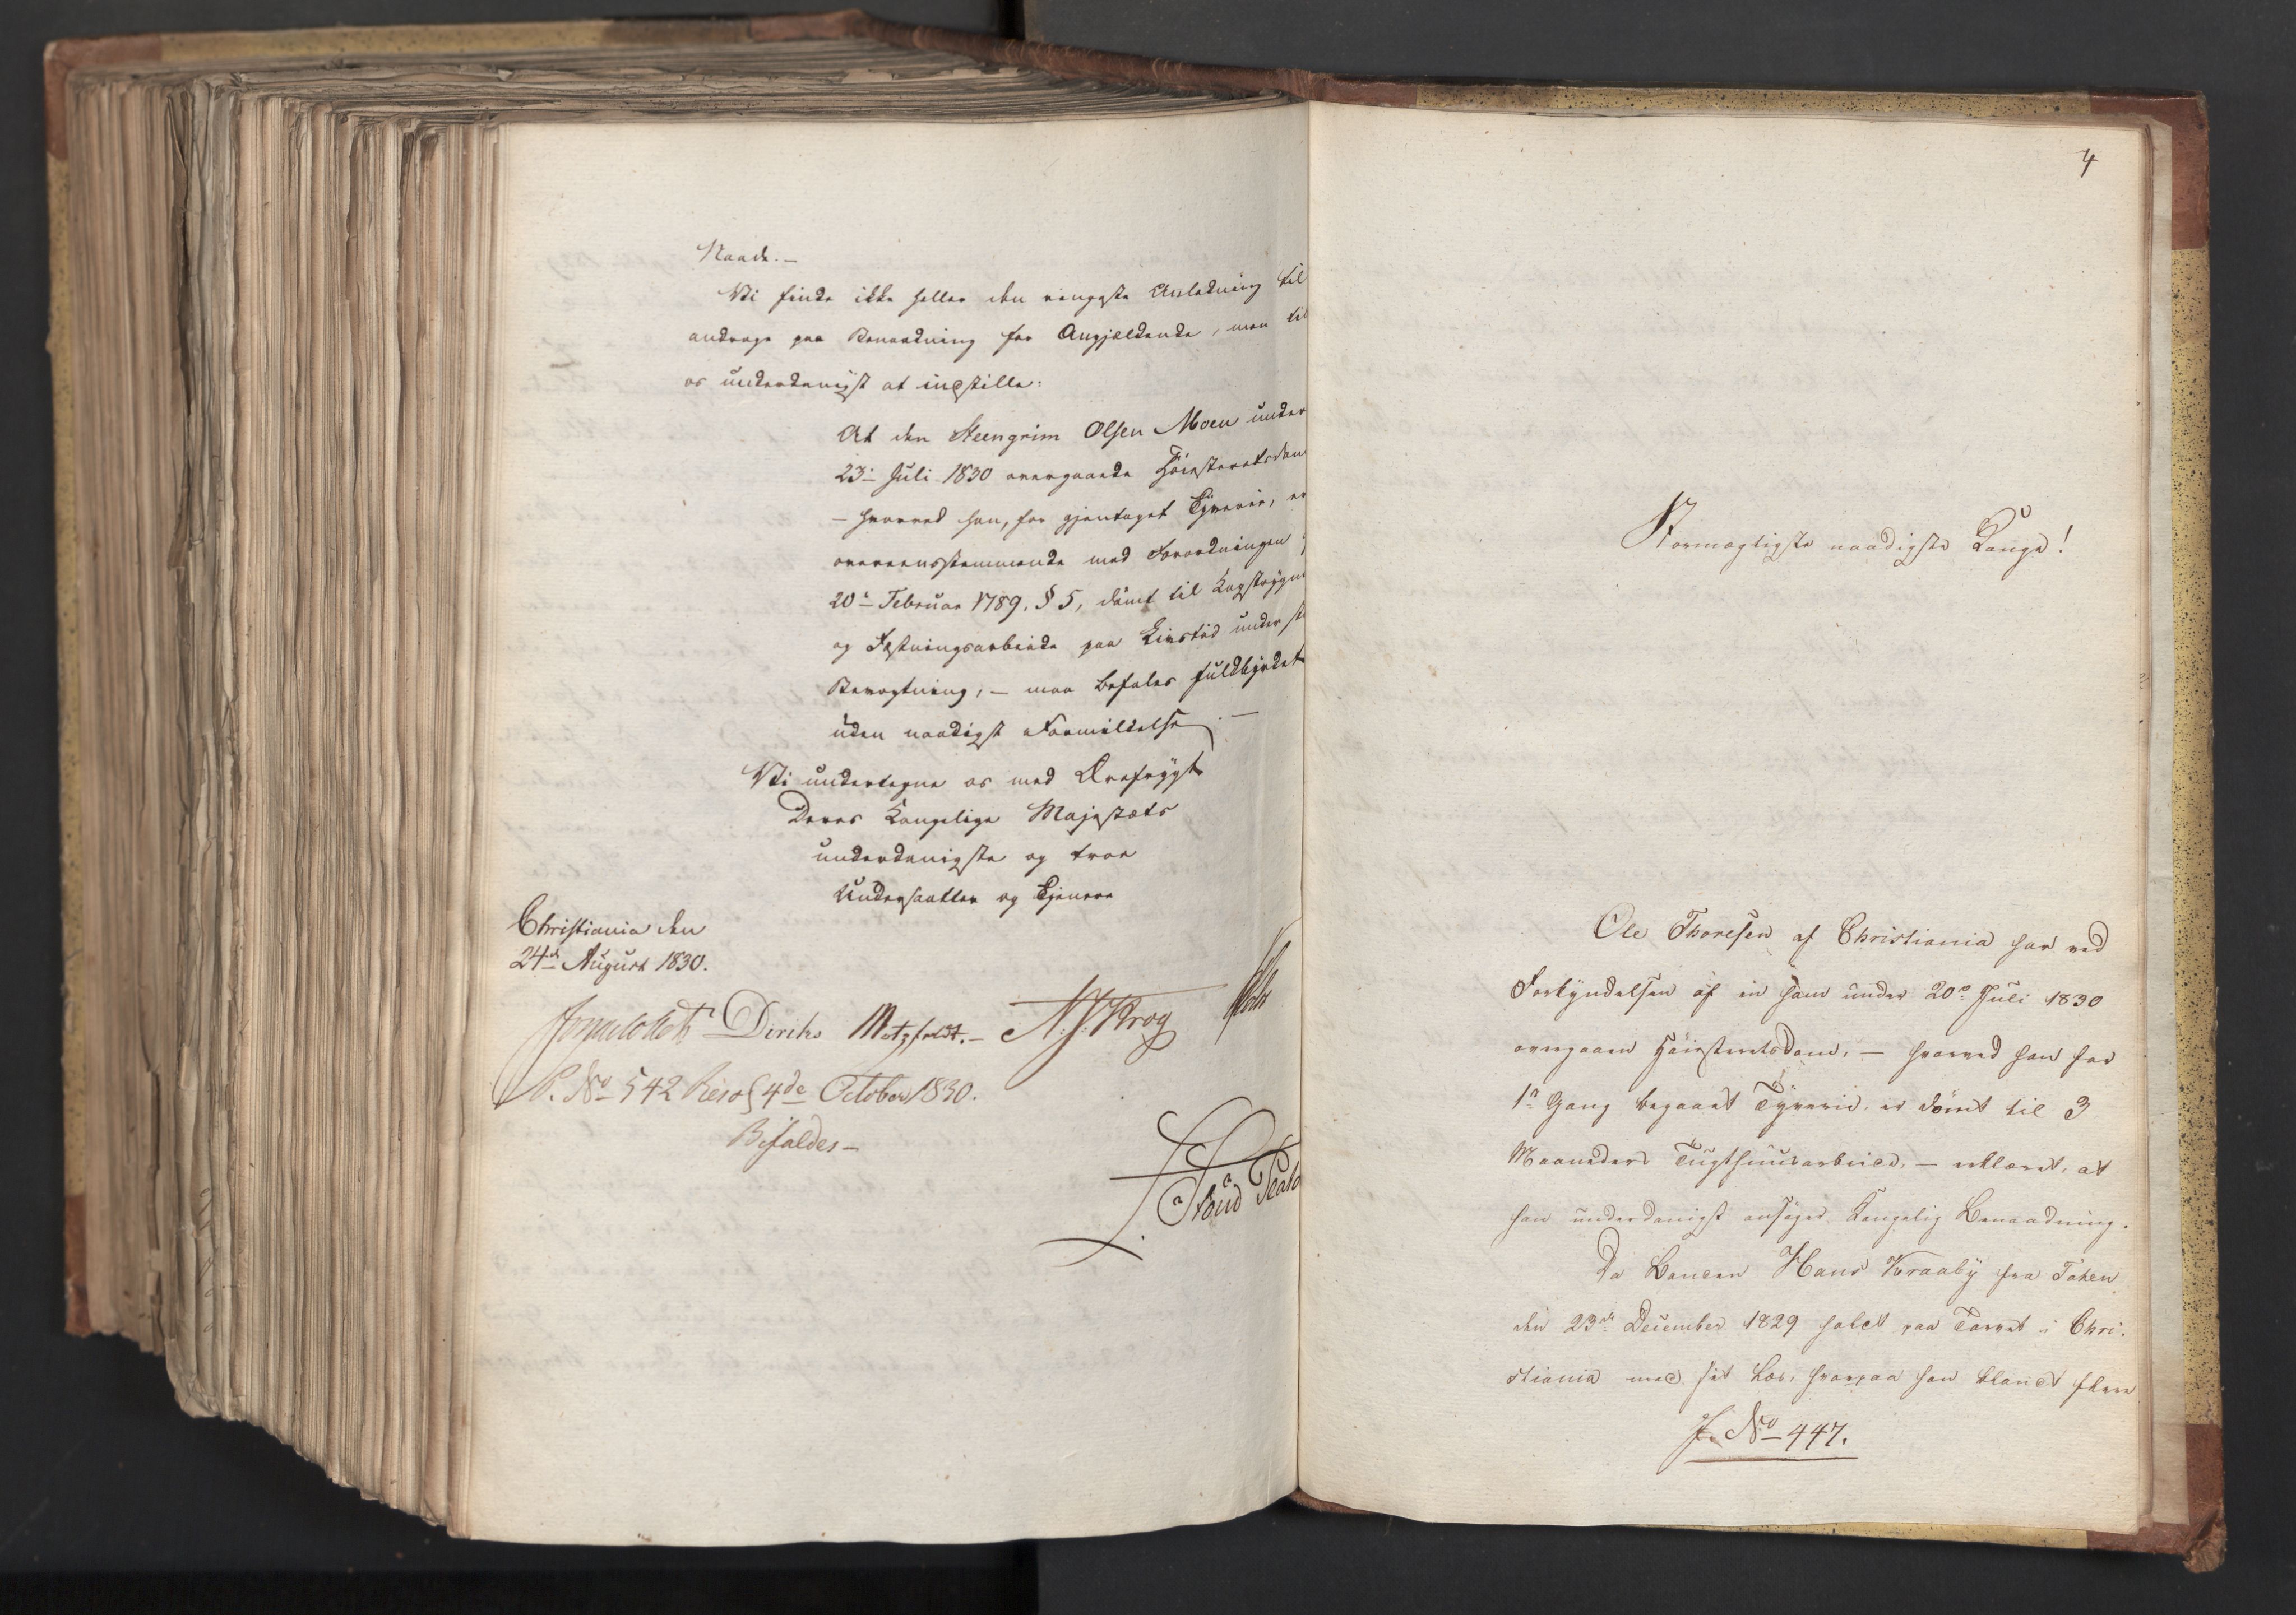 Naade. –
Vi finde ikke heller den ringeste Anledning til
andrage paa Benaadning for Angjældende, men til
os underdanigst at indstille:
At den Steengrim Olsen Moen under
23de Juli 1830 overgaaede Høiesteretsdom
– hvorved han, for gjentaget Tyverie, er
overeensstemmende med Forordningen
20de Februar 1789, § 5, dømt til Kagstrygn
og Fæstningsarbeide paa Livstid under st
Bevogtning, – maa befales fuldbyrdet
uden naadigst Formildelse. –
Vi undertegne os med Ærefrygt
Deres Kongelige Majestæts
underdanigste og troe
Undersaatter og Tjenere
Christiania den
24de August 1830.
Diriks Motzfeldt. – N. J. Krog
P. No 542 Resol 4de October 1830.
Bifaldes –
4
Stormægtigste naadigste Konge!
Ole Thoresen af Christiania har ved
Forkyndelsen af en ham under 20de Juli 1830
overgaaen Høiesteretsdom, – hvorved han for
1ste Gang begaaet Tyverie, er dømt til 3
Maaneders Tugthuusarbeide, – erklæret, at
han underdanigst ansøger Kongelig Benaadning.
Da Bonden Hans Kraaby fra Toten
den 23de December 1829 holdt paa Torvet i Chri-
stiania med sit Læs, hvorpaa han blandt flere
J. No 447.